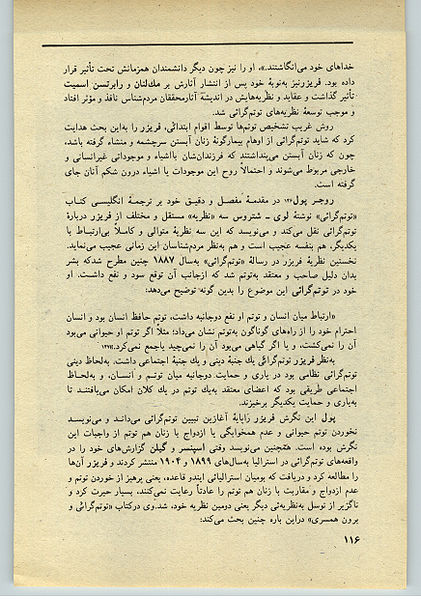 خداهای خود می‌انگاشتند.»، او را نیز چون دیگر دانشمندان همزمانش تحت تأثیر قرار
داده بود. فریزرنیز به‌نوبهٔ خود پس از انتشار آثارش بر مك‌لنان و رابرتسن اسمیت
تأثیر گذاشت و عقاید و نظریه‌هایش در اندیشهٔ آثارمحققان مردم‌شناس نافذ و مؤثر افتاد
و موجب توسعهٔ نظریه‌های توتم‌گرائی شد.
روش غریب تشخیص توتم‌ها توسط اقوام ابتدائی، فریزر را به‌این بحث هدایت
کرد که شاید توتم‌گرائی از اوهام بیمارگونهٔ زنان آبستن سرچشمه و منشاء گرفته باشد،
چون که زنان آبستن می‌پنداشتند که فرزندان‌شان بااشیاء و موجوداتی غیرانسانی و
خارجی مربوط می‌شوند و احتمالاً روح این موجودات یا اشیاء درون شکم آنان جای
گرفته است.
روجر پول در مقدمهٔ مفصل و دقیق خود بر ترجمهٔ انگلیسی کتاب
«توتم‌گرائی» نوشتهٔ لوی ـ شتروس سه «نظریهٔ» مستقل و مختلف از فریزر دربارهٔ
توتم‌گرائی نقل می‌کند و می‌نویسد که این سه نظریهٔ متوالی و کاملاً بی‌ارتباط با
یکدیگر، هم بنفسه عجیب است و هم به‌نظر مردم‌شناسان این زمانی عجیب می‌نماید.
نخستین نظریهٔ فریزر در رسالهٔ «توتم‌گرائی» به‌سال ۱۸۸۷ چنین مطرح شدکه بشر
بدان دلیل صاحب و معتقد به‌توتم شد که ازجانب آن توقع سود و نفع داشت. او
خود در توتم‌گرائی این موضوع را بدین گونه توضیح می‌دهد:
«ارتباط میان انسان و توتم او نفع دوجانبه داشت، توتم حافظ انسان بود و انسان
احترام خود را از راه‌های گوناگون به‌توتم نشان می‌داد؛ مثلاً اگر توتم او حیوانی می‌بود
آن را نمی‌کشت، و یا اگر گیاهی می‌بود آن را نمی‌چید یاجمع نمی‌کرد.»
به‌نظر فریزر توتم‌گرائی یك جنبهٔ دینی و یك جنبهٔ اجتماعی داشت. به‌لحاظ دینی
توتم‌گرائی نظامی بود در یاری و حمایت دوجانبه میان توتم و انسان، و به‌لحاظ
اجتماعی طریقی بود که اعضای معتقد به‌یك توتم در یك کلان امکان می‌یافتند تا
به‌یاری و حمایت یکدیگر برخیزند.
پول این نگرش فریزر رابابهٔ آغازین تبیین توتم‌گرائی می‌داند و می‌نویسد
نخوردن توتم حیوانی و عدم همخوابگی یا ازدواج با زنان هم توتم از واجبات این
نگرش بوده است. همچنین می‌نویسد وقتی اسپنسر و گیلن گزارش‌های خود را در
واقعه‌های توتم‌گرائی در استرالیا به‌سال‌های ۱۸۹۹ و ۱۹۰۴ منتشر کردند و فریزر آن‌ها
را مطالعه کرد و دریافت که بومیان استرالیائی ایندو قاعده، یعنی پرهیز از خوردن توتم و
عدم ازدواج و مقاربت با زنان هم توتم را عادتاً رعایت نمی‌کنند، بسیار حیرت کرد و
ناگزیر از توسل به‌نظریه‌ئی دیگر یعنی دومین نظریه خود، شد. وی درکتاب «توتم‌گرائی و
برون همسری» دراین باره چنین بحث می‌کند:
۱۱۶